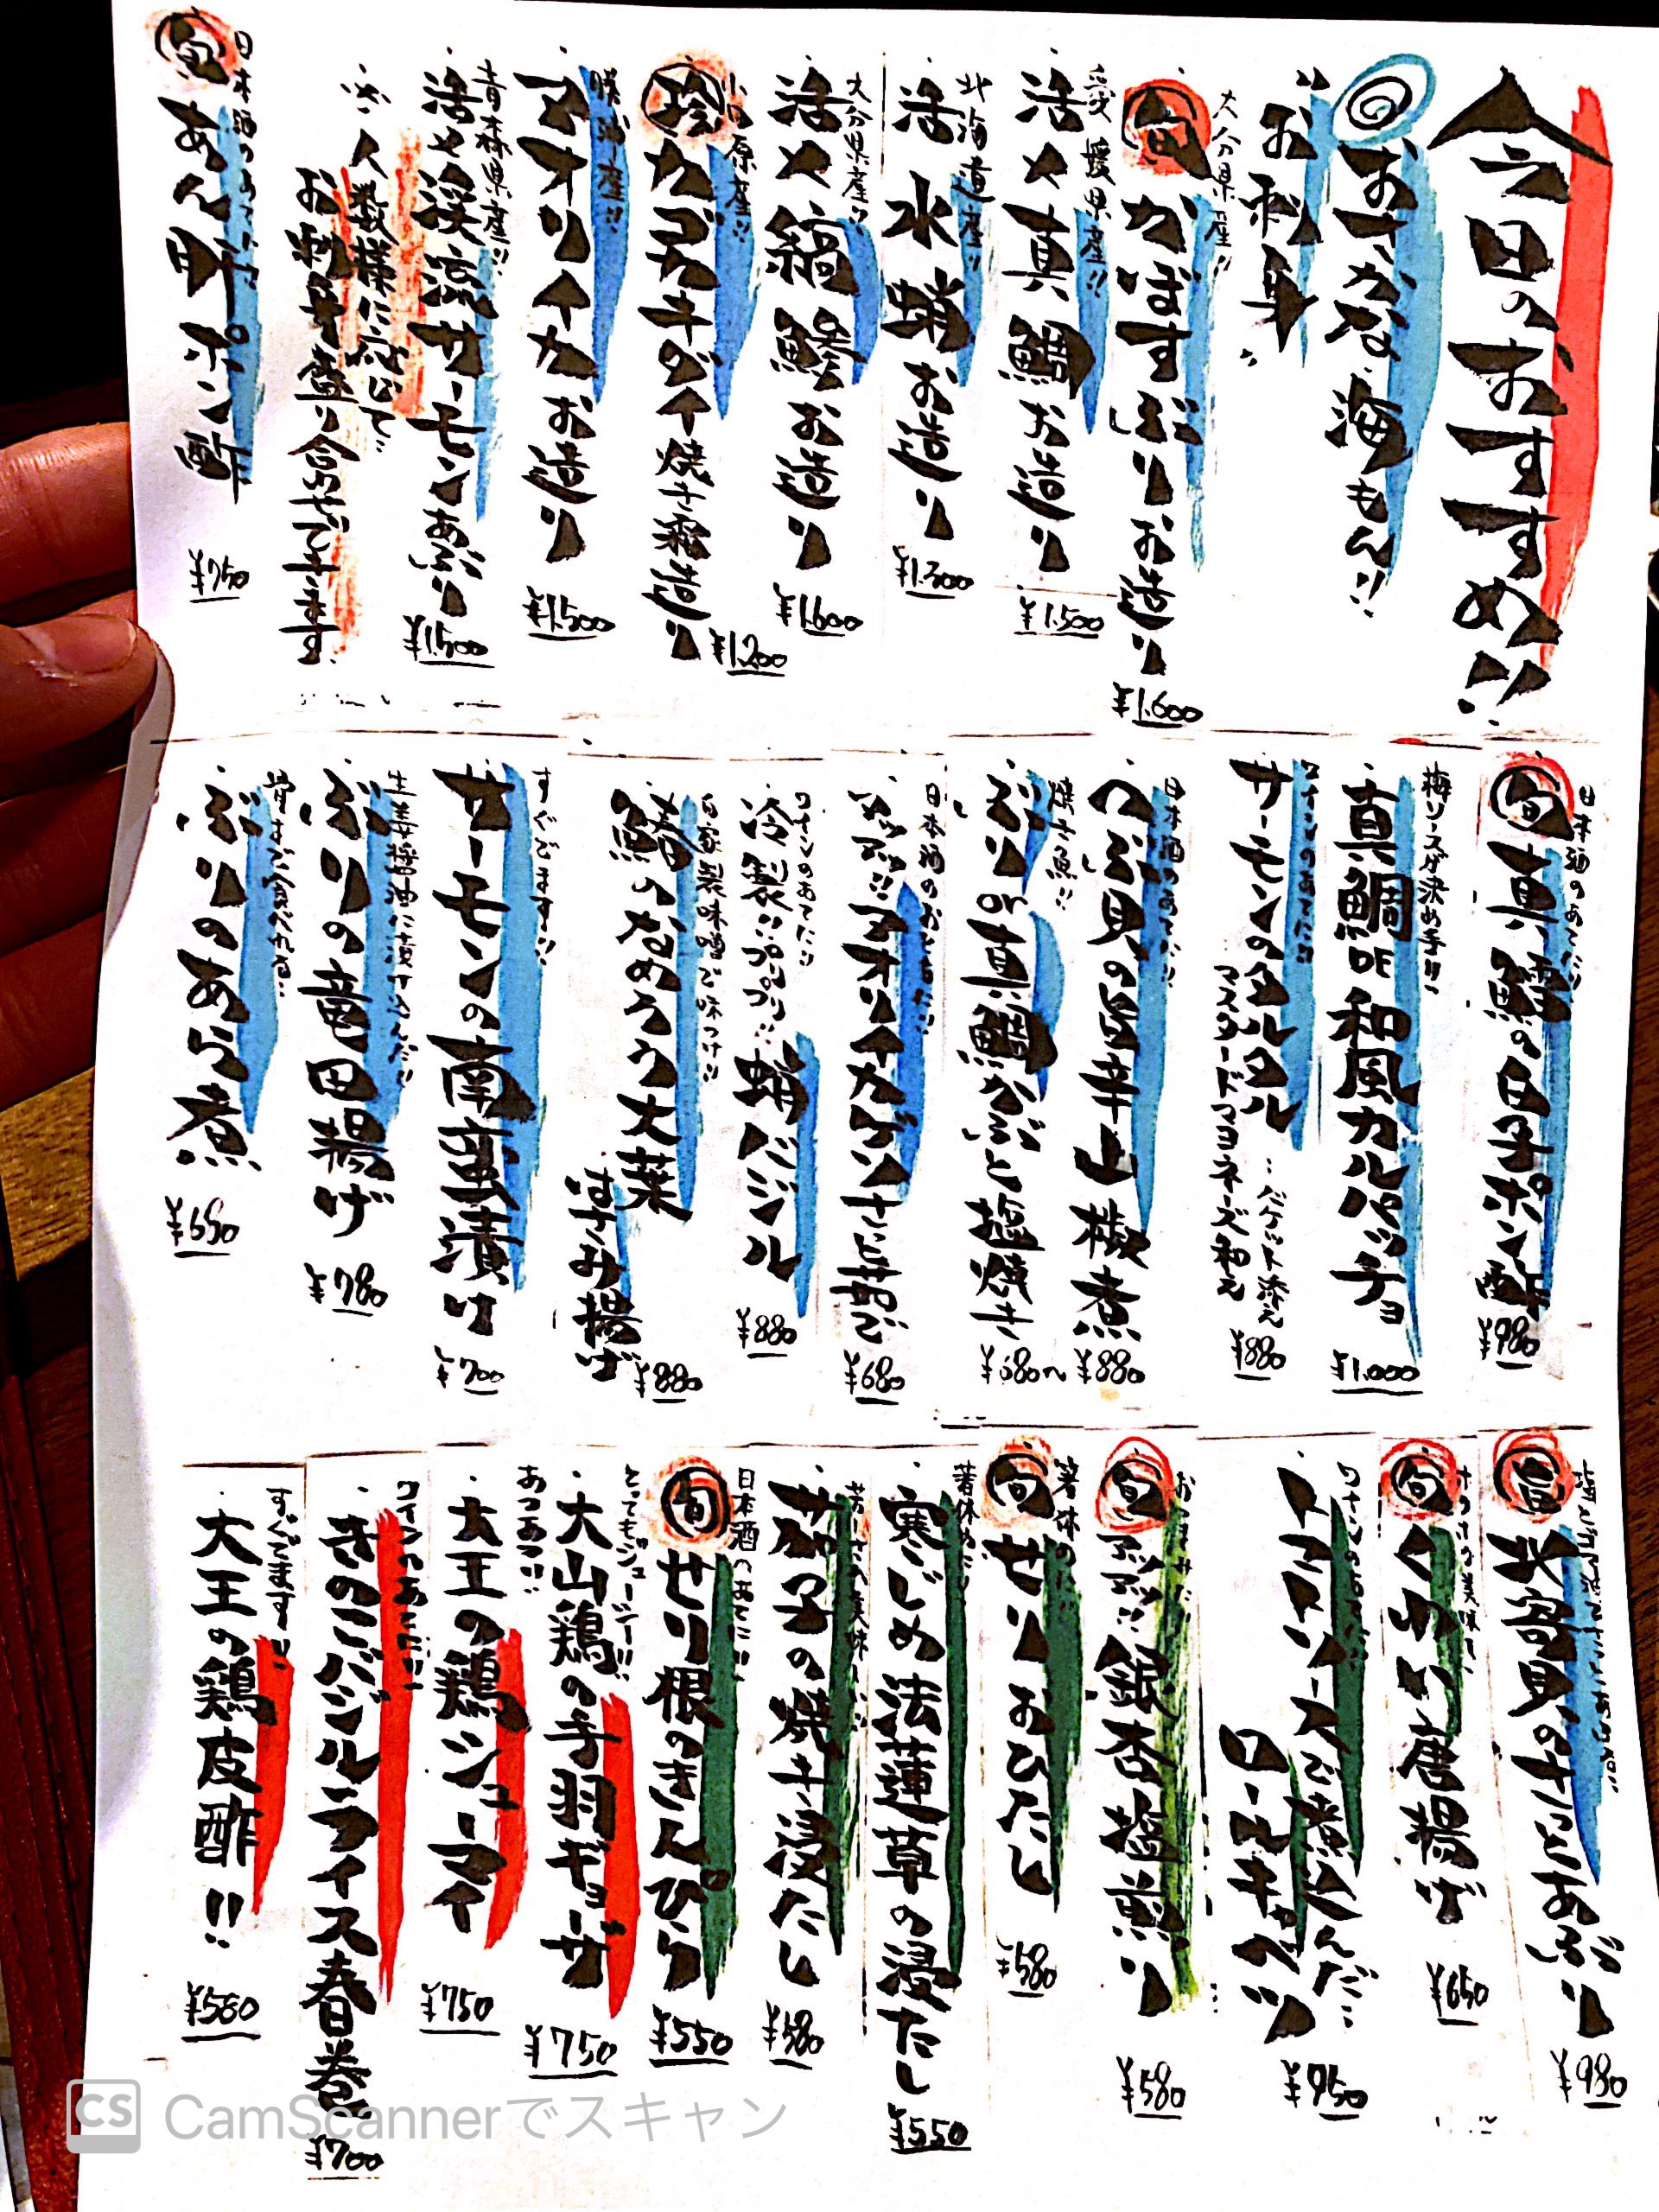 今日のおすすめ!!
おさかな 海もん!!
お刺身
大分県産!!
旬 かぼすぶりお造り
¥1.600
愛媛県産!!
活〆真鯛お造り
¥1.500
北海道産!!
活水蛸お造り
¥1.300
大分県産!!
活〆縞鯵お造り
¥1.600
小田原産!!
珍 カゴカキダイ焼き霜造り
¥1.200
勝浦産!!
アオリイカお造り
¥1.500
青森県産!!
活〆渓流サーモンあぶり
¥1.500
人数様に応じて
お刺身盛り合せできます
日本酒のあてに!!
旬 あん肝ポン酢
¥750
日本酒のあてに!!
旬 真鱈の白子ポン酢
¥980
梅ソースが決め手!!
真鯛DE和風カルパッチョ
¥1.000
ワインのあてに!!
サーモンのタルタル
バケット添え
マスタードマヨネーズ和え
¥880
日本酒のあてに!!
つぶ貝の旨辛山椒煮
¥880
焼き魚!!
ぶり or 真鯛かぶと塩焼き
¥680〜
日本酒のおともに!!
アツアツ!!アオリイカゲソさっと茹で
¥680
ワインのあてに!!
冷製!!プリプリ!!蛸バジル
¥880
自家製味噌で味つけ!!
鯵のなめろう大葉
はさみ揚げ
¥880
すぐでます!!
サーモンの南蛮漬け
¥700
生姜醤油に漬け込んだ!!
ぶりの竜田揚げ
¥780
骨まで食べれる!!
ぶりのあら煮
¥680
北寄貝のさっとあぶり
¥980
旬 くわい唐揚げ
¥650
ワインのあてに!!
トマトソースで煮込んだ
ロールキャベツ
¥950
旬 アツアツ!!銀杏塩煎り
¥580
箸休めに!!
旬 せりおひたし
¥580
箸休めに!!
寒じめ法蓮草の浸たし
¥550
茄子の焼き浸たし
¥580
日本酒のあてに!!
旬 せり根のきんぴら
¥550
とってもジューシー!!
大山鶏の手羽ギョーザ
¥750
あつあつ!!
大王の鶏シューマイ
¥750
ワインのあてに!!
きのこバジルライス春巻
¥700
すぐでます!!
大王の鶏皮酢!!
¥580
CS CamScannerでスキャン